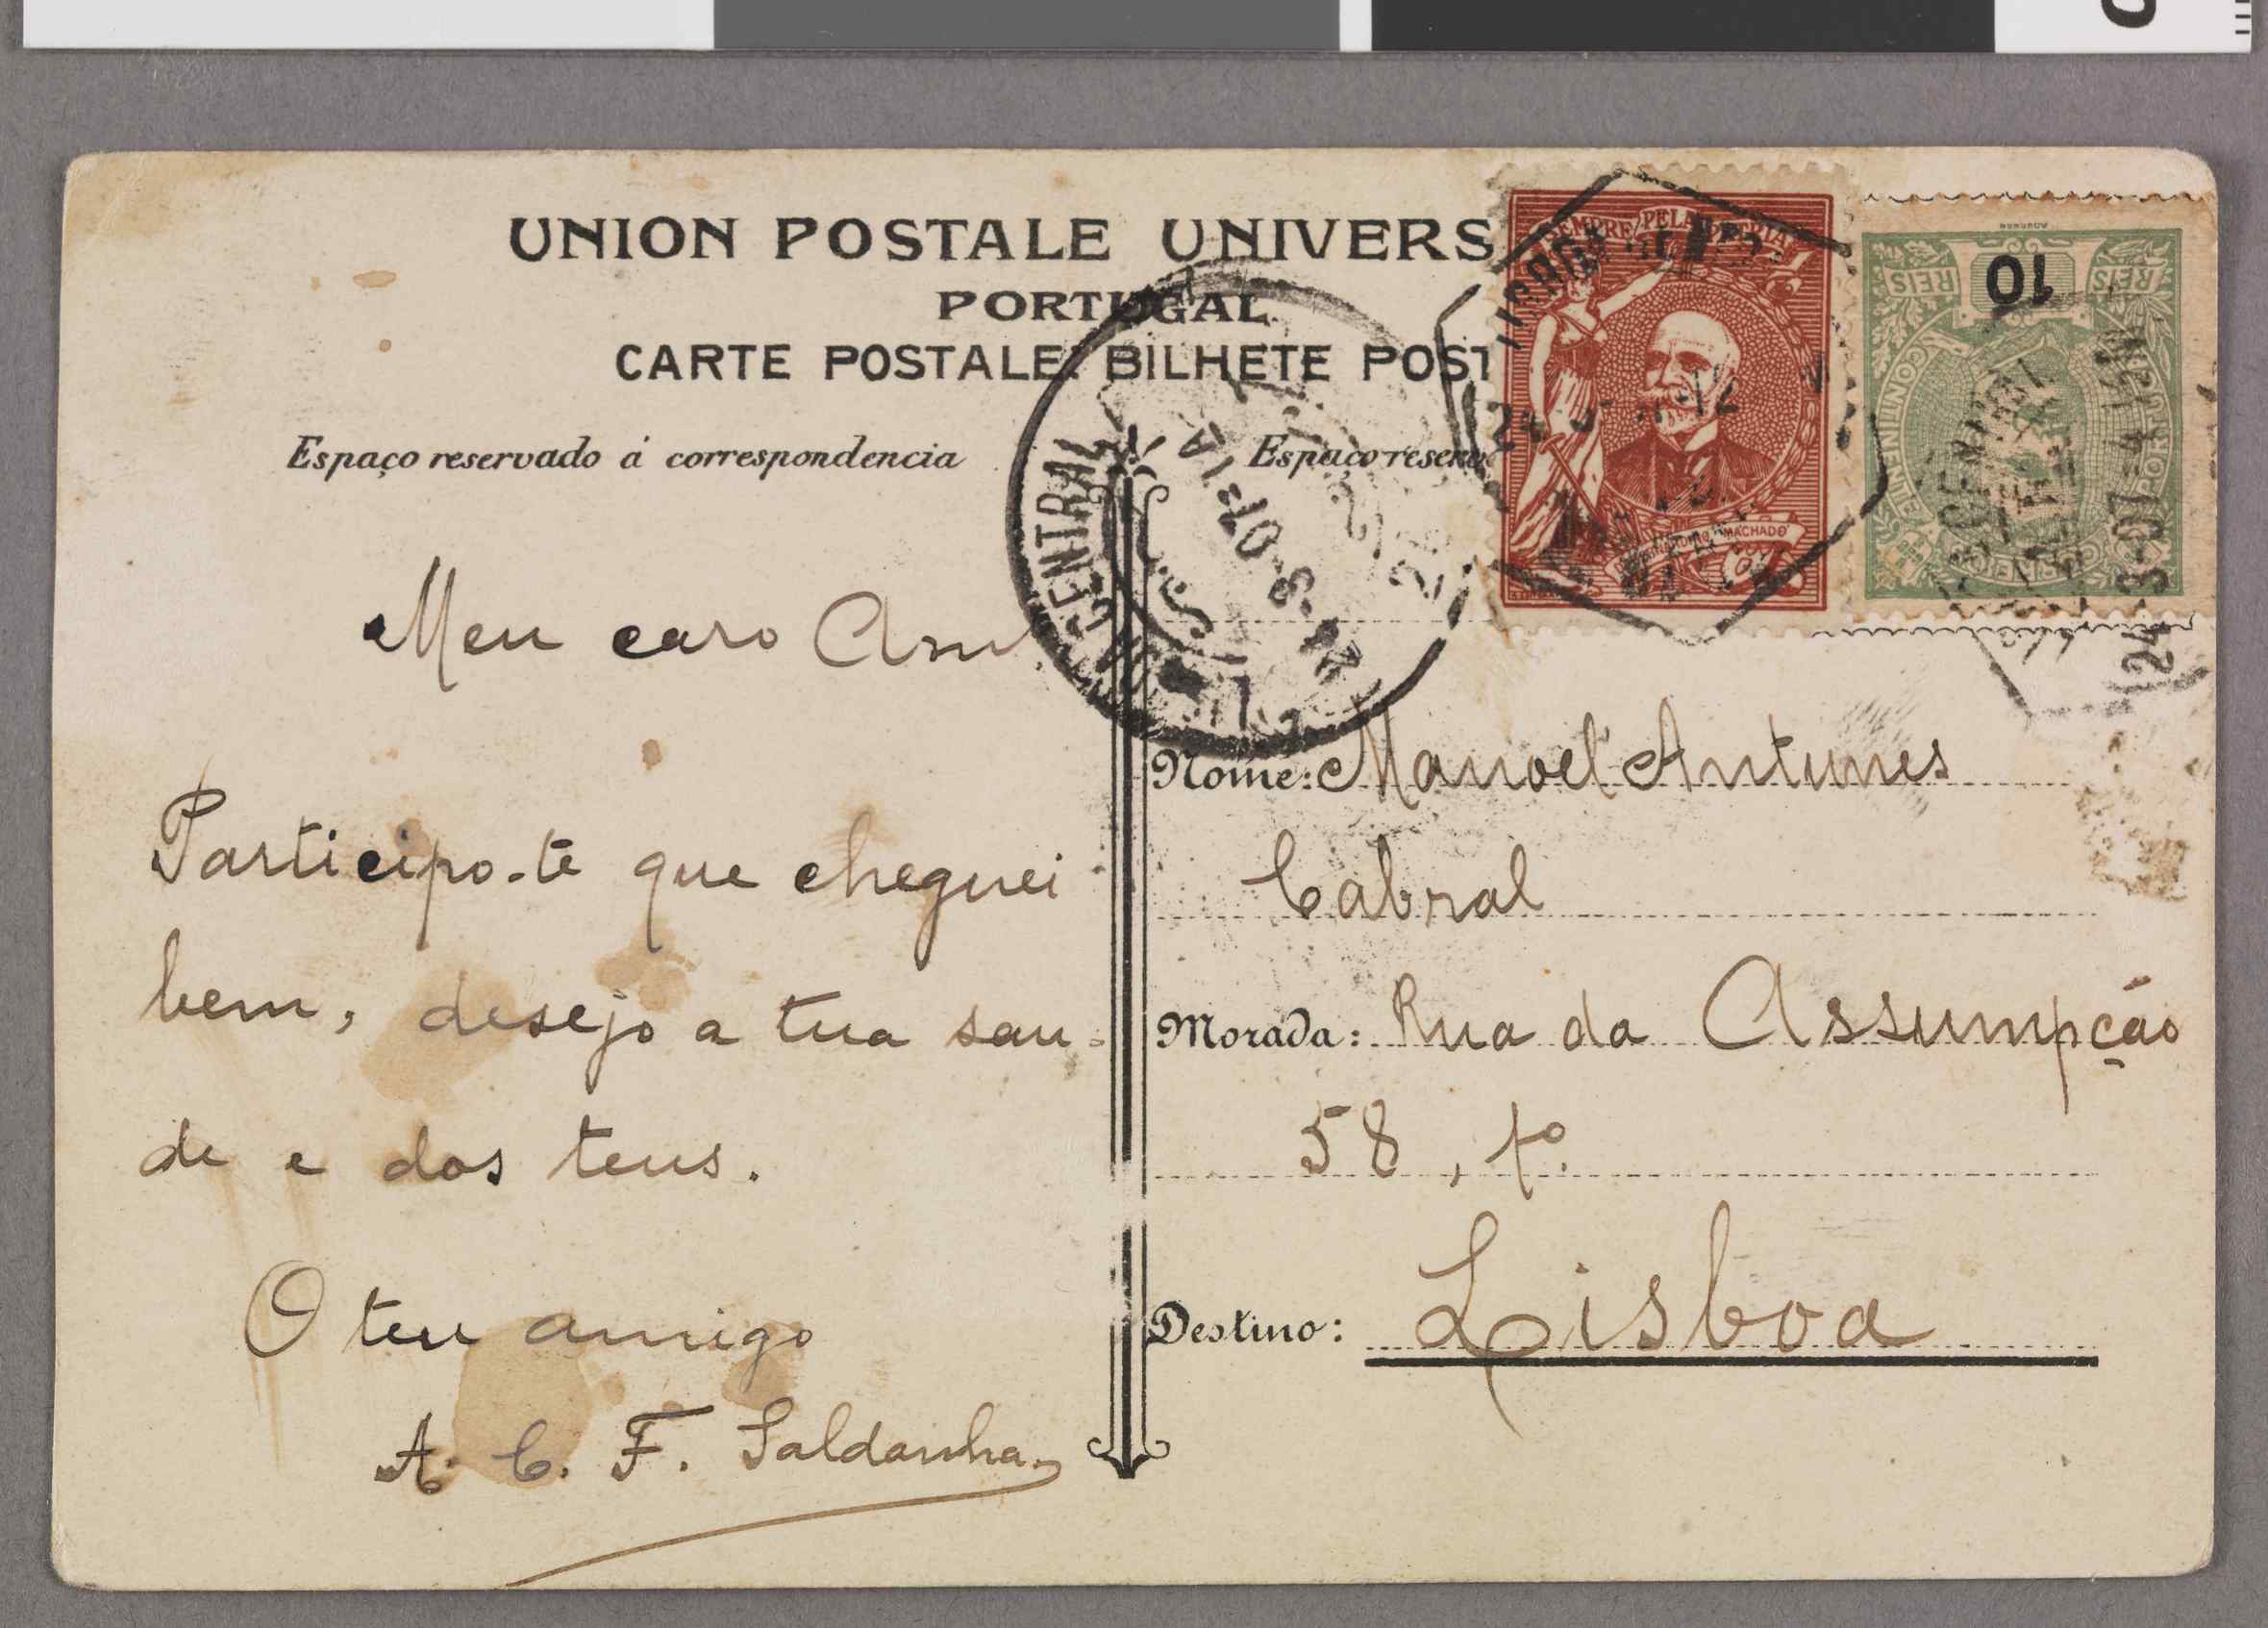 UNION POSTALE UNIVERS
PORTUGAL
CARTE POSTALE. BILHETE POST
Espaço reservado á correspondencia
Espaço reserv
SEMPRE PELA PATRIA
MACHADO
REIS 10 REIS
CONTINENTE
PORTUGAL
CORREIOS
CENTRAL
24-3-07
24 3-07
Meu caro Am.
Participo-te que cheguei
bem, desejo a tua sau-
de e dos teus.
O teu amigo
A. C. F. Saldanha
Nome: Manoel Antunes
Cabral
Morada: Rua da Assumpção
58, 1º
Destino: Lisboa